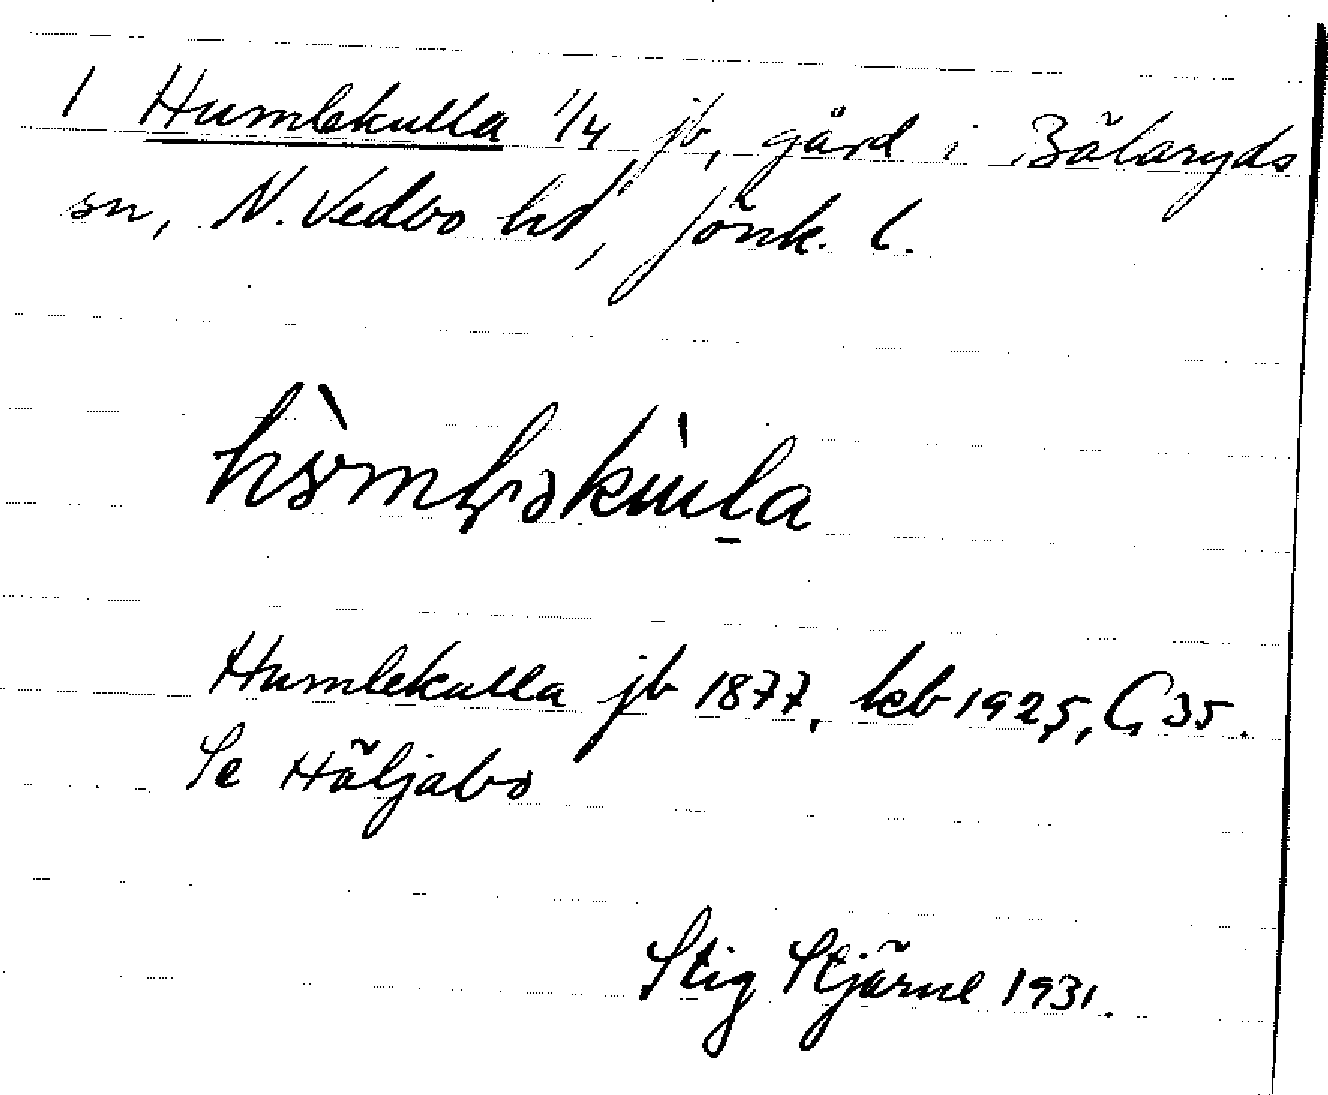 1 Humlekulla 1/4 jb, gård i Bälaryds
sn, N. Vedbo hd, Jönk. l.
Humlekulla jb 1877, keb 1925, G 35.
Se Häljabo
Stig Stjärne 1931.